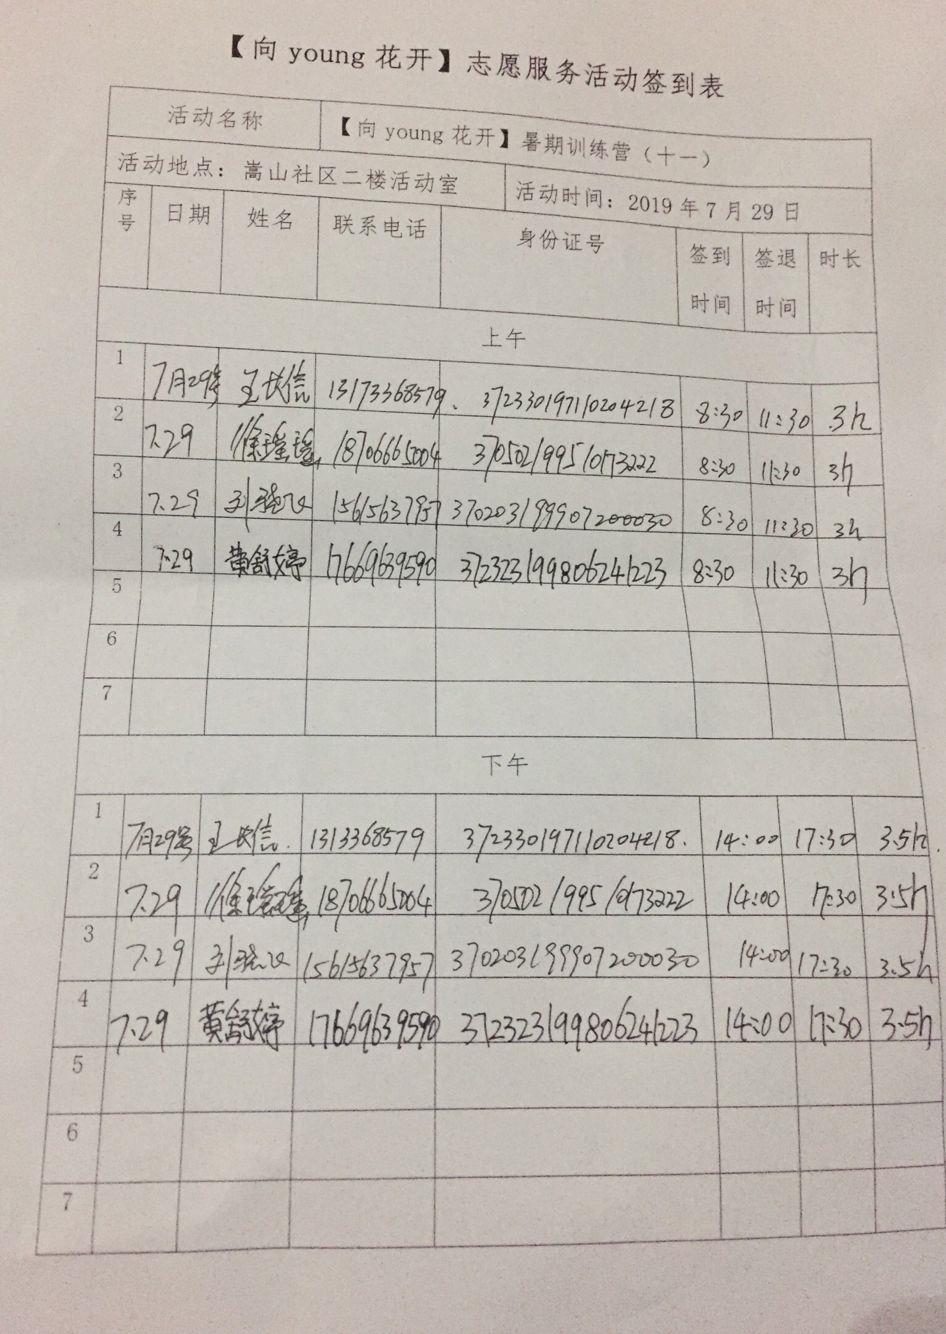 【向 young 花开】志愿服务活动签到表
活动名称 【向 young 花开】暑期训练营（十一）
活动地点：嵩山社区二楼活动室 活动时间：2019 年 7 月 29 日
序号 日期 姓名 联系电话 身份证号 签到时间 签退时间 时长
上午
1 7月29号 王长信 13173368579 372330197110204218 8:30 11:30 3h
2 7.29 徐瑶瑶 18706665004 370502199510173222 8:30 11:30 3h
3 7.29 15615637957 370203199907200030 8:30 11:30 3h
4 7.29 黄舒婷 17669639590 372323199806241223 8:30 11:30 3h
5
6
7
下午
1 7月29号 王长信 1313368579 372330197110204218. 14:00 17:30 3.5h.
2 7.29 徐瑶瑶 18706665004 370502199510173222 14:00 17:30 3.5h
3 7.29 15615637957 370203199907200030 14:00 17:30 3.5h
4 7.29 黄舒婷 17669639590 372323199806241223 14:00 17:30 3.5h
5
6
7